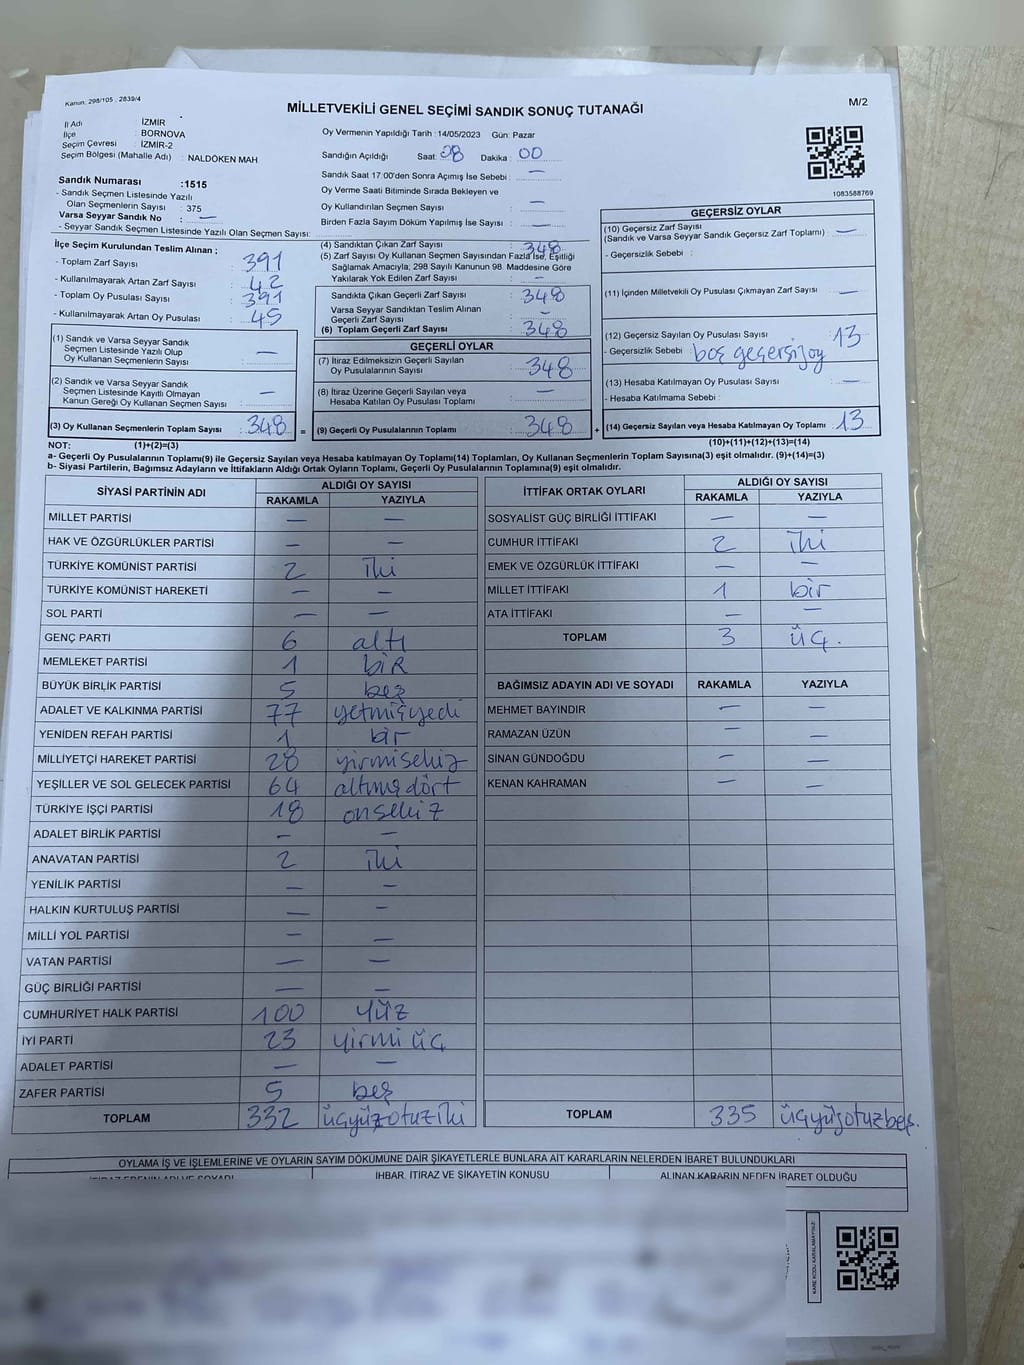 Kanun: 298/105 , 2839/4
MİLLETVEKİLİ GENEL SEÇİMİ SANDIK SONUÇ TUTANAĞI
M/2
İl Adı : İZMİR
İlçe : BORNOVA
Seçim Çevresi : İZMİR-2
Seçim Bölgesi (Mahalle Adı) : NALDÖKEN MAH
Sandık Numarası :1515
- Sandık Seçmen Listesinde Yazılı
Olan Seçmenlerin Sayısı : 375
Varsa Seyyar Sandık No : —
- Seyyar Sandık Seçmen Listesinde Yazılı Olan Seçmen Sayısı:
Oy Vermenin Yapıldığı Tarih : 14/05/2023 Gün: Pazar
Sandığın Açıldığı Saat: 08 Dakika : 00
Sandık Saat 17.00'den Sonra Açımış İse Sebebi : —
Oy Verme Saati Bitiminde Sırada Bekleyen ve
Oy Kullandırılan Seçmen Sayısı : —
Birden Fazla Sayım Döküm Yapılmış İse Sayısı : —
1083588769
İlçe Seçim Kurulundan Teslim Alınan ;
- Toplam Zarf Sayısı : 391
- Kullanılmayarak Artan Zarf Sayısı : 42
- Toplam Oy Pusulası Sayısı : 391
- Kullanılmayarak Artan Oy Pusulası : 45
(1) Sandık ve Varsa Seyyar Sandık
Seçmen Listesinde Yazılı Olup
Oy Kullanan Seçmenlerin Sayısı : —
(2) Sandık ve Varsa Seyyar Sandık
Seçmen Listesinde Kayıtlı Olmayan
Kanun Gereği Oy Kullanan Seçmen Sayısı : —
(3) Oy Kullanan Seçmenlerin Toplam Sayısı : 348 =
(4) Sandıktan Çıkan Zarf Sayısı : 348
(5) Zarf Sayısı Oy Kullanan Seçmen Sayısından Fazla İse, Eşitliği
Sağlamak Amacıyla; 298 Sayılı Kanunun 98. Maddesine Göre
Yakılarak Yok Edilen Zarf Sayısı : —
Sandıkta Çıkan Geçerli Zarf Sayısı : 348
Varsa Seyyar Sandıktan Teslim Alınan
Geçerli Zarf Sayısı : —
(6) Toplam Geçerli Zarf Sayısı : 348
GEÇERLİ OYLAR
(7) İtiraz Edilmeksizin Geçerli Sayılan
Oy Pusulalarının Sayısı : 348
(8) İtiraz Üzerine Geçerli Sayılan veya
Hesaba Katılan Oy Pusulası Toplamı : —
(9) Geçerli Oy Pusulalarının Toplamı : 348 +
GEÇERSİZ OYLAR
(10) Geçersiz Zarf Sayısı
(Sandık ve Varsa Seyyar Sandık Geçersiz Zarf Toplamı) : —
- Geçersizlik Sebebi :
(11) İçinden Milletvekili Oy Pusulası Çıkmayan Zarf Sayısı : —
(12) Geçersiz Sayılan Oy Pusulası Sayısı : 13
- Geçersizlik Sebebi : boş geçersiz oy
(13) Hesaba Katılmayan Oy Pusulası Sayısı : —
- Hesaba Katılmama Sebebi :
(14) Geçersiz Sayılan veya Hesaba Katılmayan Oy Toplamı : 13
NOT: (1)+(2)=(3)
(10)+(11)+(12)+(13)=(14)
a- Geçerli Oy Pusulalarının Toplamı(9) ile Geçersiz Sayılan veya Hesaba katılmayan Oy Toplamı(14) Toplamları, Oy Kullanan Seçmenlerin Toplam Sayısına(3) eşit olmalıdır. (9)+(14)=(3)
b- Siyasi Partilerin, Bağımsız Adayların ve İttifakların Aldığı Ortak Oyların Toplamı, Geçerli Oy Pusulalarının Toplamına(9) eşit olmalıdır.
SİYASİ PARTİNİN ADI ALDIĞI OY SAYISI
RAKAMLA YAZIYLA
MİLLET PARTİSİ — —
HAK VE ÖZGÜRLÜKLER PARTİSİ — —
TÜRKİYE KOMÜNİST PARTİSİ 2 iki
TÜRKİYE KOMÜNİST HAREKETİ — —
SOL PARTİ — —
GENÇ PARTİ 6 altı
MEMLEKET PARTİSİ 1 bir
BÜYÜK BİRLİK PARTİSİ 5 beş
ADALET VE KALKINMA PARTİSİ 77 yetmişyedi
YENİDEN REFAH PARTİSİ 1 bir
MİLLİYETÇİ HAREKET PARTİSİ 28 yirmisekiz
YEŞİLLER VE SOL GELECEK PARTİSİ 64 altmışdört
TÜRKİYE İŞÇİ PARTİSİ 18 onsekiz
ADALET BİRLİK PARTİSİ — —
ANAVATAN PARTİSİ 2 iki
YENİLİK PARTİSİ — —
HALKIN KURTULUŞ PARTİSİ — —
MİLLİ YOL PARTİSİ — —
VATAN PARTİSİ — —
GÜÇ BİRLİĞİ PARTİSİ — —
CUMHURİYET HALK PARTİSİ 100 yüz
İYİ PARTİ 23 yirmi üç
ADALET PARTİSİ — —
ZAFER PARTİSİ 5 beş
TOPLAM 332 üçyüzotuziki
İTTİFAK ORTAK OYLARI ALDIĞI OY SAYISI
RAKAMLA YAZIYLA
SOSYALİST GÜÇ BİRLİĞİ İTTİFAKI — —
CUMHUR İTTİFAKI 2 iki
EMEK VE ÖZGÜRLÜK İTTİFAKI — —
MİLLET İTTİFAKI 1 bir
ATA İTTİFAKI — —
TOPLAM 3 üç.
BAĞIMSIZ ADAYIN ADI VE SOYADI RAKAMLA YAZIYLA
MEHMET BAYINDIR — —
RAMAZAN ÜZÜN — —
SİNAN GÜNDOĞDU — —
KENAN KAHRAMAN — —
TOPLAM 335 üçyüzotuzbeş.
OYLAMA İŞ VE İŞLEMLERİNE VE OYLARIN SAYIM DÖKÜMÜNE DAİR ŞİKAYETLERLE BUNLARA AİT KARARLARIN NELERDEN İBARET BULUNDUKLARI
İTİRAZ EDENİN ADI VE SOYADI İHBAR, İTİRAZ VE ŞİKAYETİN KONUSU ALINAN KARARIN NEDEN İBARET OLDUĞU
KARE KODU KARALAMAYINIZ!